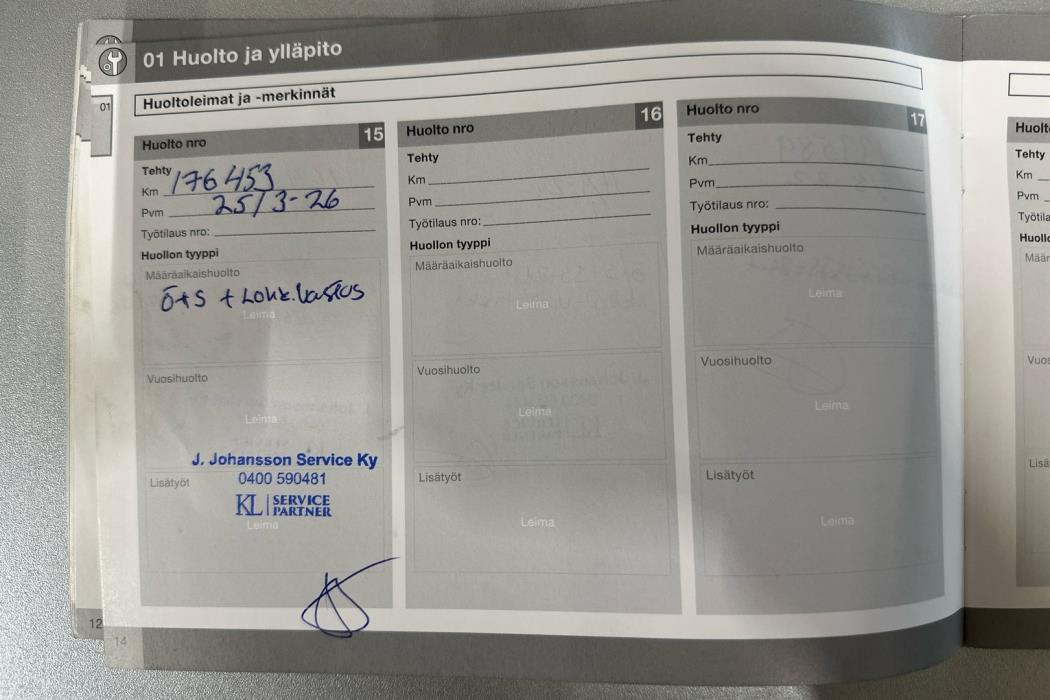 01 Huolto ja ylläpito
01
Huoltoleimat ja -merkinnät
Huolto nro 15
Tehty
Km 176453
Pvm 25/3-26
Työtilaus nro:
Huollon tyyppi
Määräaikaishuolto
Ö+S + Lohk.lastas
Leima
Vuosihuolto
Leima
J. Johansson Service Ky
0400 590481
Lisätyöt
KL SERVICE PARTNER
Leima
Huolto nro 16
Tehty
Km
Pvm
Työtilaus nro:
Huollon tyyppi
Määräaikaishuolto
Leima
Vuosihuolto
Leima
Lisätyöt
Leima
Huolto nro 17
Tehty
Km
Pvm
Työtilaus nro:
Huollon tyyppi
Määräaikaishuolto
Leima
Vuosihuolto
Leima
Lisätyöt
Leima
Tehty
Km
Pvm
12
14